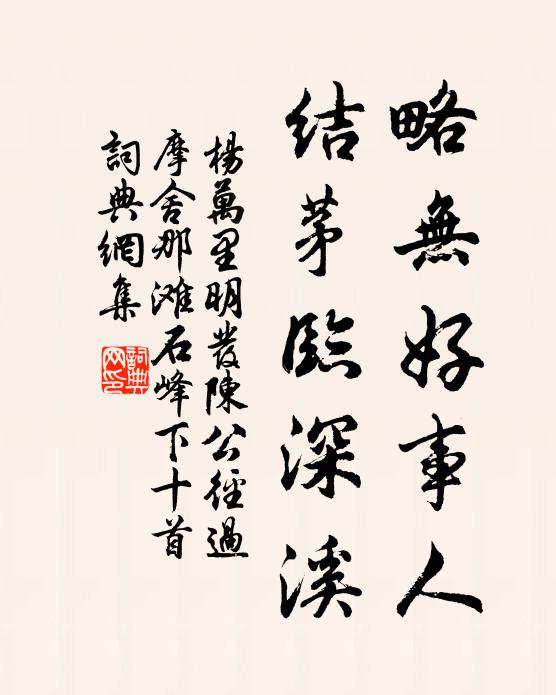 略無好事人
結茅臨深溪
楊萬里明發陳公徑過
摩舍那滩石峰下十首
詞典網集
詞典網印